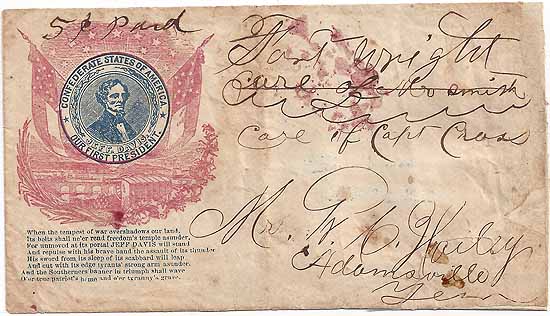 5¢ Paid
Fort Wright
care of
care of Capt Cross
CONFEDERATE STATES OF AMERICA.
JEFF. DAVIS.
OUR FIRST PRESIDENT.
When the tempest of war overshadows our land,
Its bolts shall ne'er rend freedom's temple asunder,
For unmoved at its portal JEFF DAVIS will stand
And repulse with his brave band the assault of its thunder
His sword from its sleep of its scabbard will leap
And cut with its edge tyrants' strong arm asunder.
And the Southerners banner in triumph shall wave
O'er true patriot's home and o'er tyranny's grave.
Mr. W. C.
Adamsville
Tenn